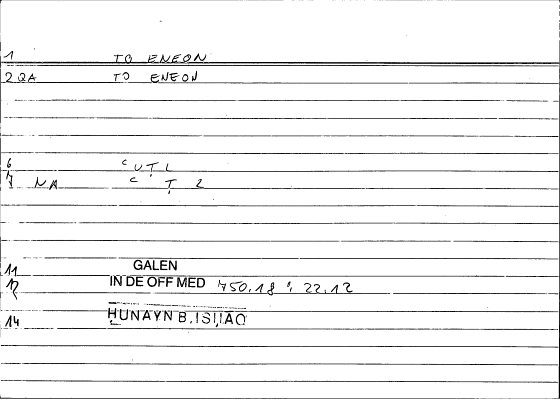 1 TO ENEON
2 QA TO ENEON
6 CUTL
7 NA C T 2
11 GALEN
12 IN DE OFF MED 750.18 : 22.12
14 HUNAYN B. ISḤAQ